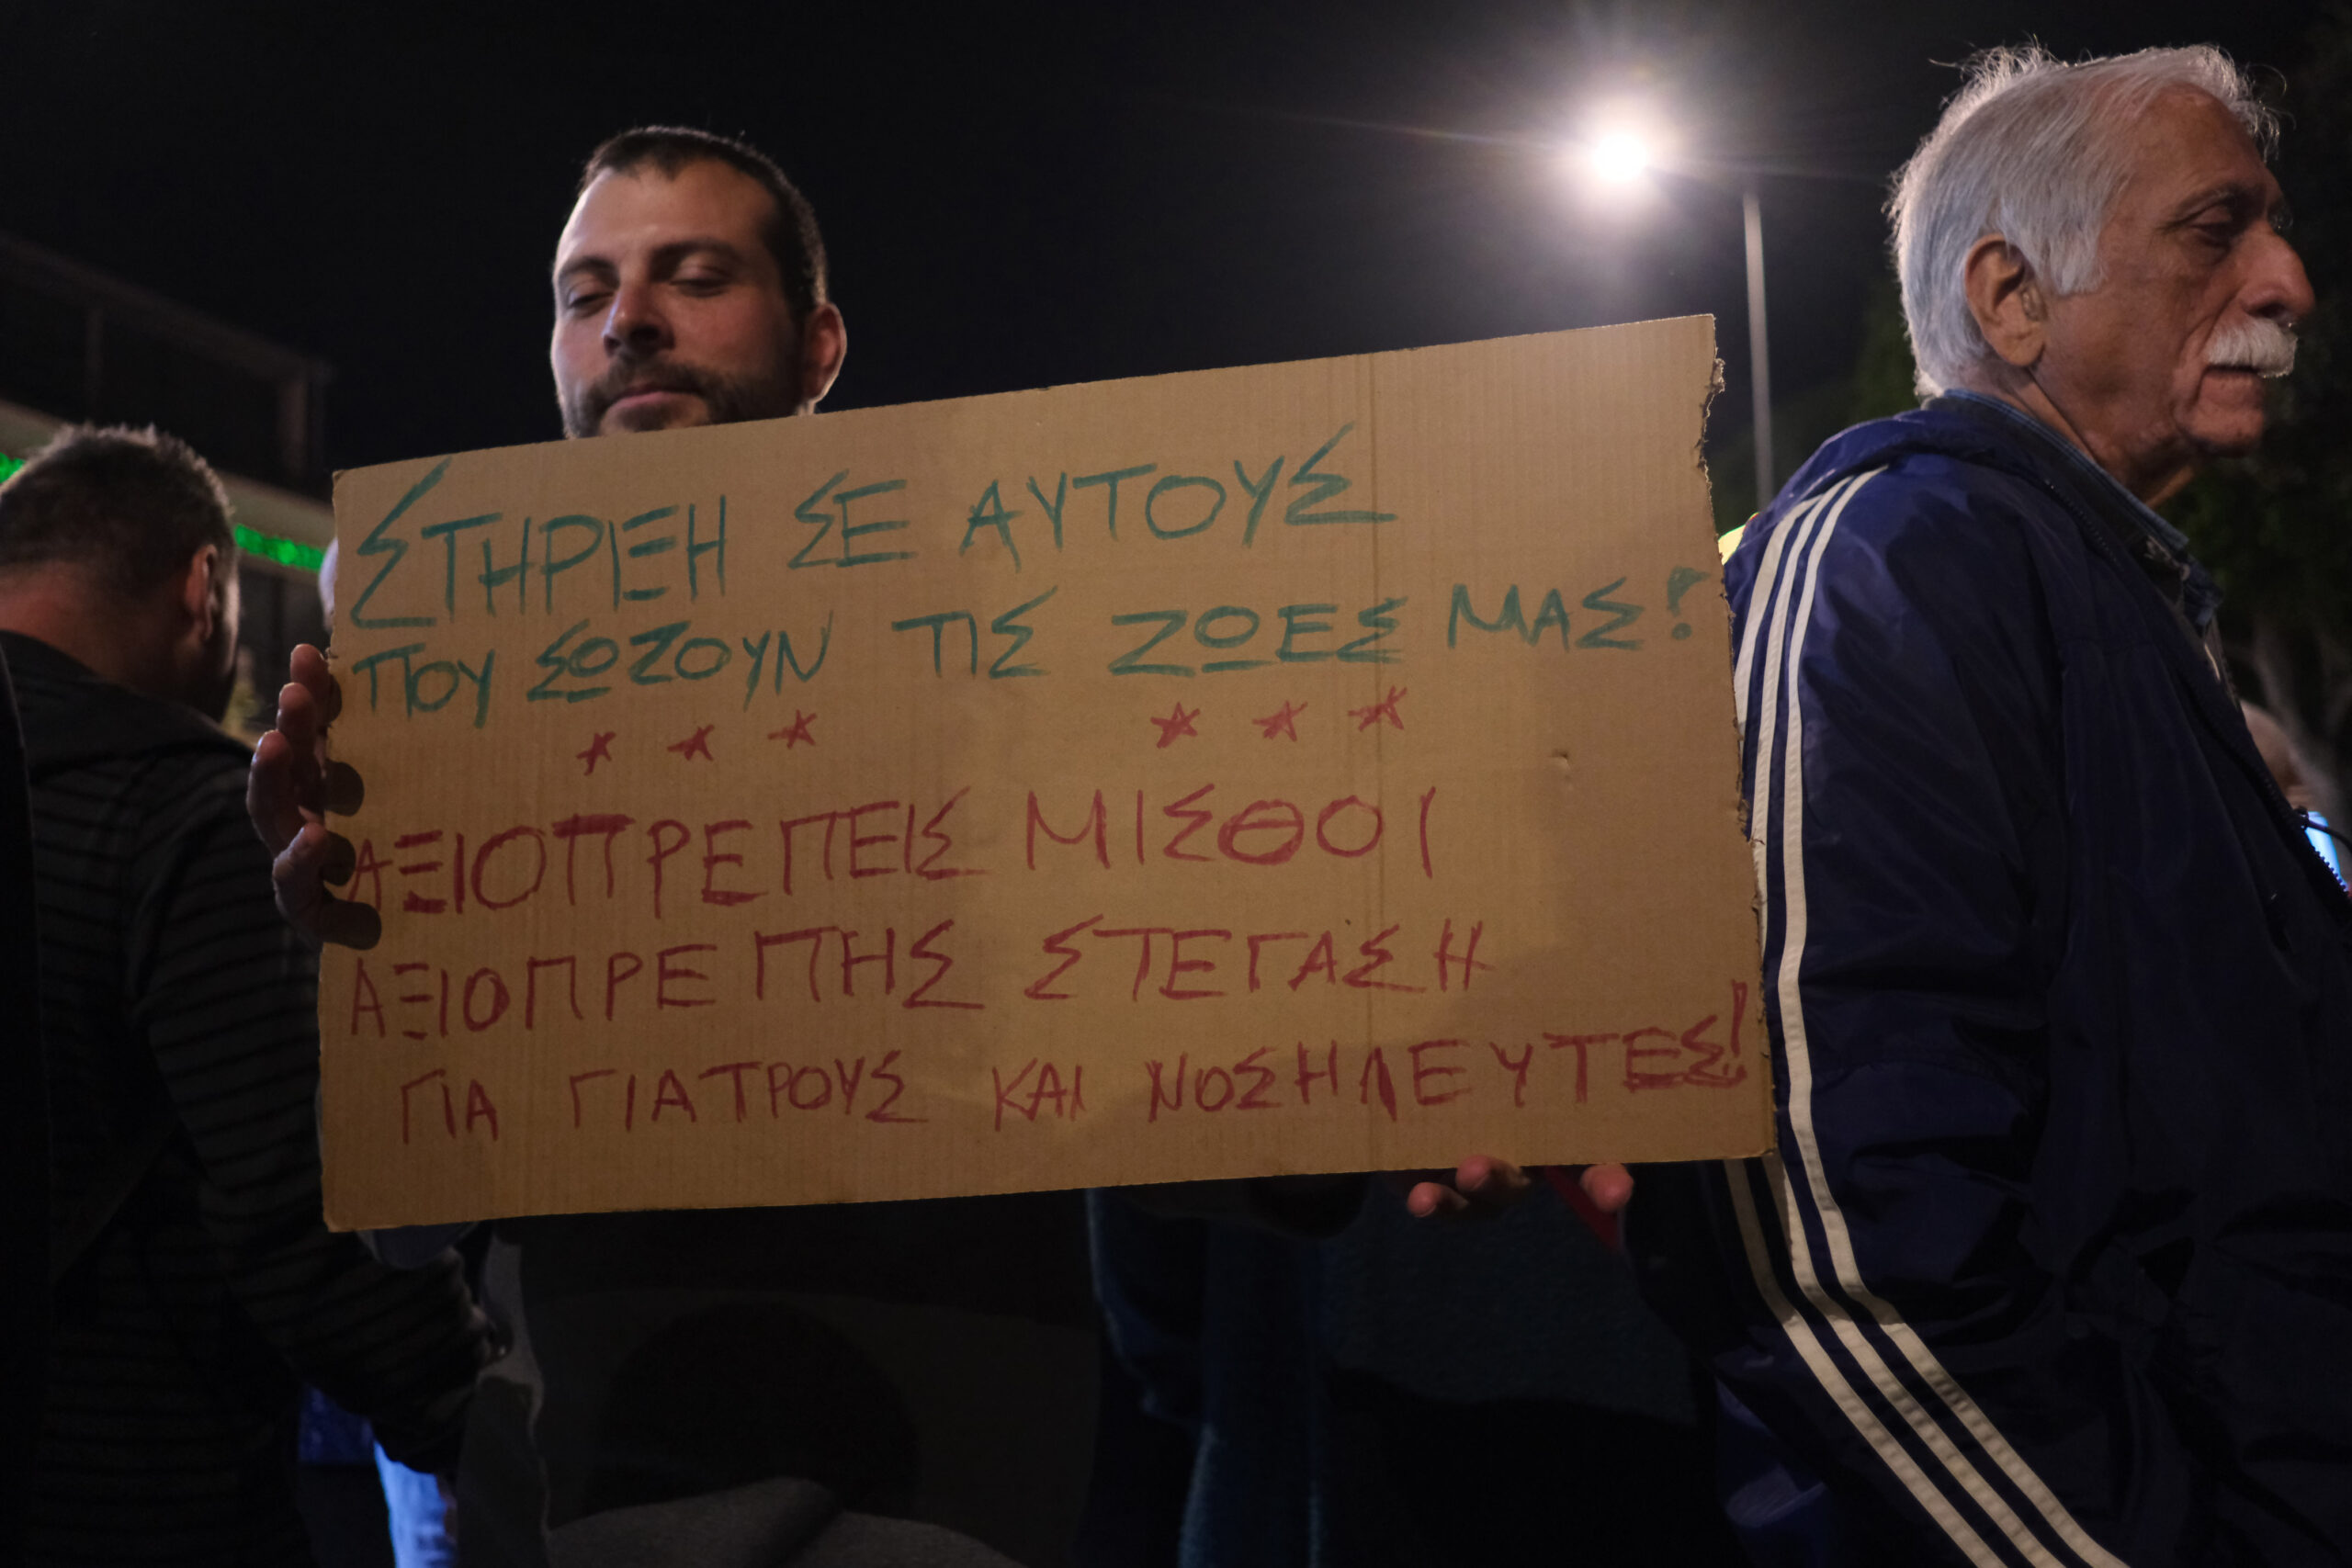 ΣΤΗΡΙΞΗ ΣΕ ΑΥΤΟΥΣ
ΠΟΥ ΣΩΖΟΥΝ ΤΙΣ ΖΩΕΣ ΜΑΣ!
ΑΞΙΟΠΡΕΠΕΙΣ ΜΙΣΘΟΙ
ΑΞΙΟΠΡΕΠΗΣ ΣΤΕΓΑΣΗ
ΓΙΑ ΓΙΑΤΡΟΥΣ ΚΑΙ ΝΟΣΗΛΕΥΤΕΣ!